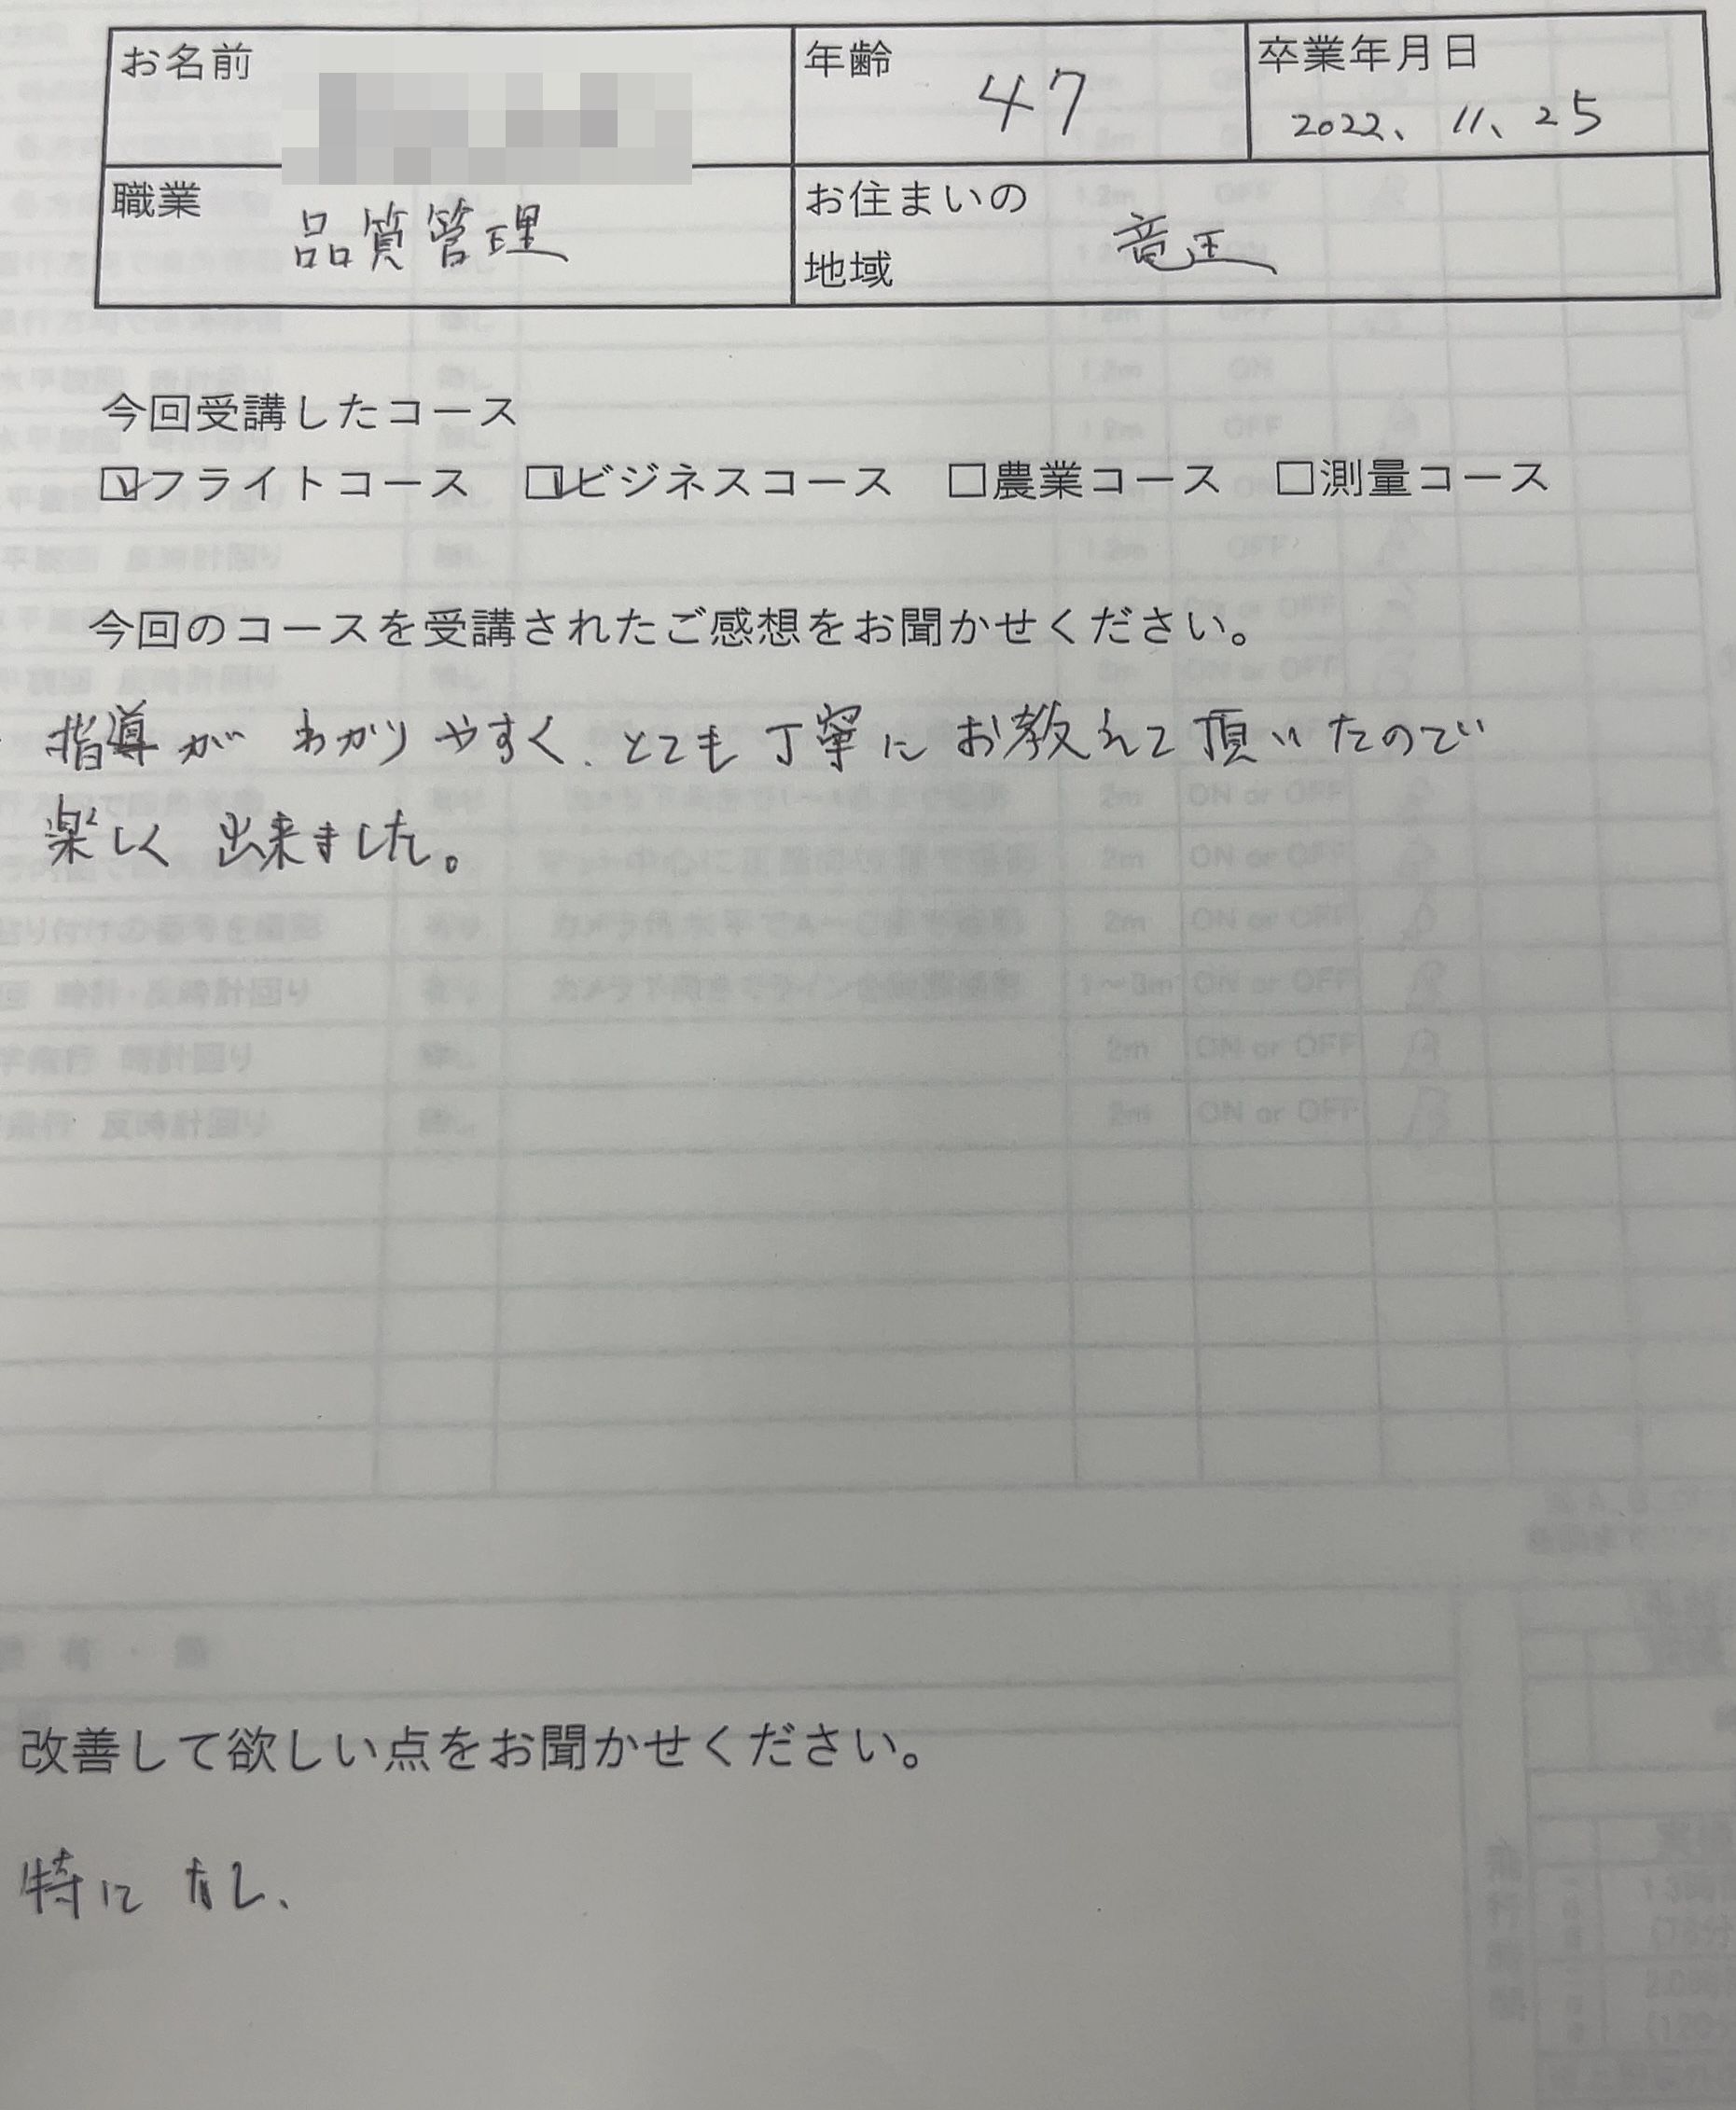 お名前
年齢 47
卒業年月日
2022、11、25
職業 品質管理
お住まいの
地域 竜王
今回受講したコース
☑フライトコース ☑ビジネスコース □農業コース □測量コース
今回のコースを受講されたご感想をお聞かせください。
指導が わかりやすく、とても丁寧にお教えて頂いたので
楽しく出来ました。
改善して欲しい点をお聞かせください。
特になし、